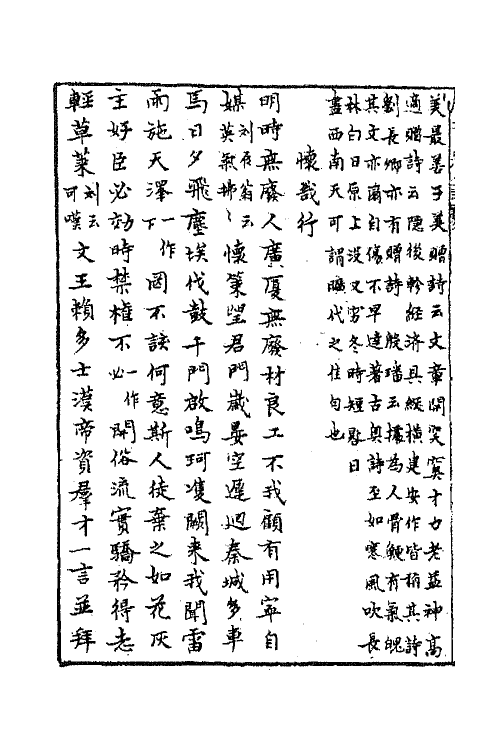 美最善子美贈詩云文章開突奧才力老益神高
適贈詩云隱後軫經济具縱橫建安作皆稱其詩
劉長卿亦有贈詩殷璠云據為人骨鯁有氣魄
其文亦爾自傷不早達著古興詩至如寒風吹長
林白日原上没又窮冬時短晷日
盡西南天可謂曠代之佳句也
懷哉行
明時無廢人廣廈無廢材良工不我顧有用寧自
媒劉辰翁云英氣拂〻懷策望君門歲晏空遲迴秦城多車
馬日夕飛塵埃伐鼓千門啟鳴珂雙闕來我聞雷
雨施天澤一作下罔不該何意斯人徒棄之如死灰
主好臣必効時禁權不必一作開俗流實驕矜得志
輕草萊劉云可嘆文王賴多士漢帝資羣才一言並拜